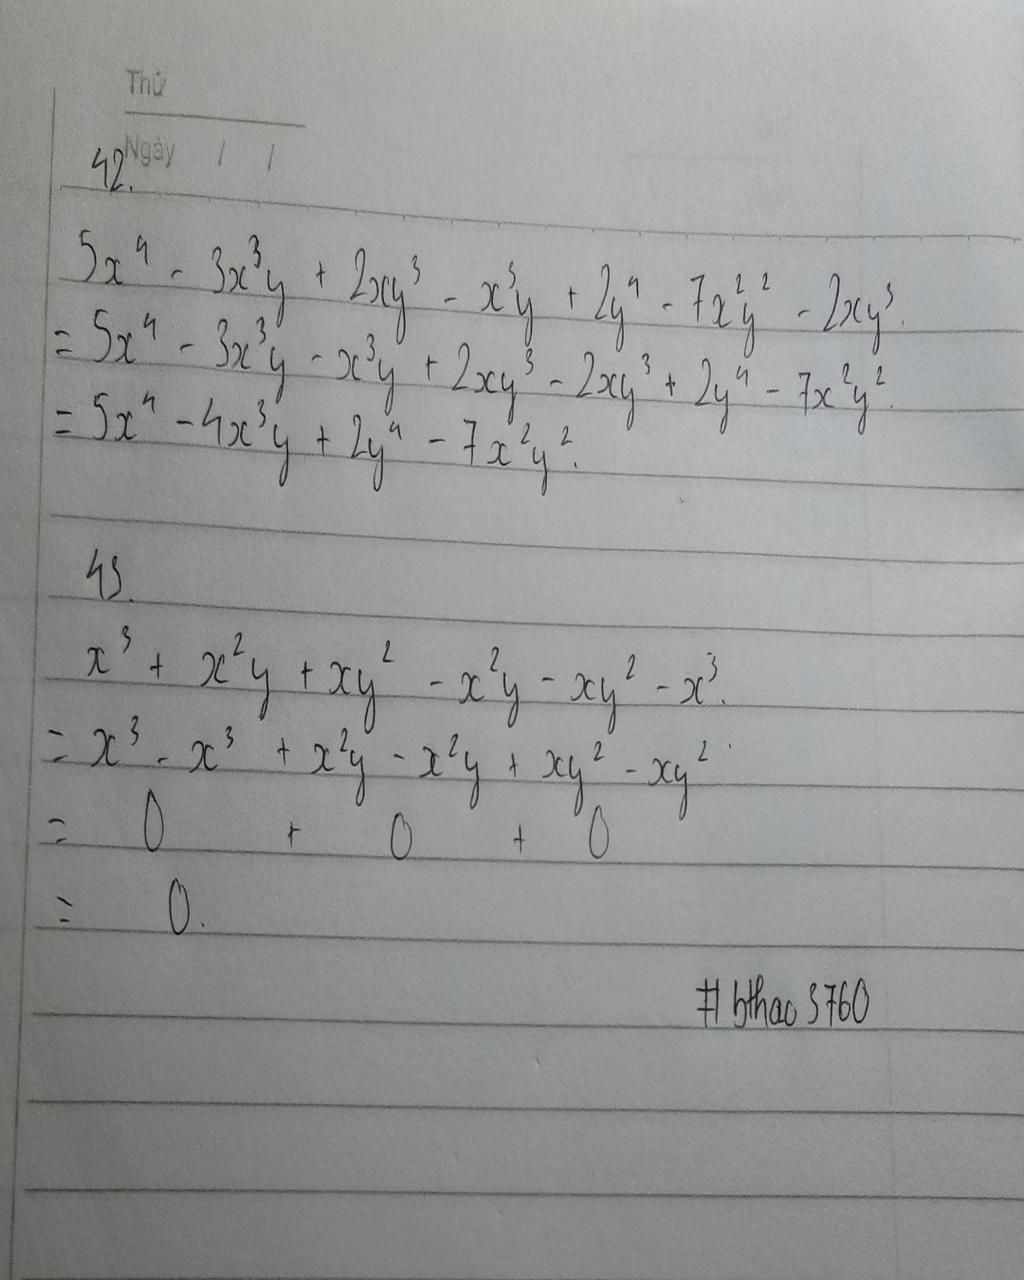 Thứ
Ngày / /
42.
5x⁴ - 3x³y + 2xy³ - x³y + 2y⁴ - 7x²y² - 2xy³.
= 5x⁴ - 3x³y - x³y + 2xy³ - 2xy³ + 2y⁴ - 7x²y².
= 5x⁴ - 4x³y + 2y⁴ - 7x²y².
43.
x³ + x²y + xy² - x²y - xy² - x³.
= x³ - x³ + x²y - x²y + xy² - xy²
= 0 + 0 + 0
= 0.
#bthao3760